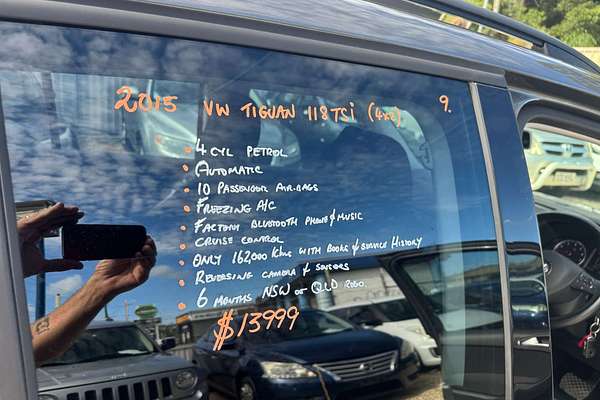 2015 VW TIGUAN 118TSi (4x4) 9.
• 4 CYL PETROL
• AUTOMATIC
• 10 PASSENGER AIR-BAGS
• FREEZING A/C
• FACTORY BLUETOOTH PHONE & MUSIC
• CRUISE CONTROL
• ONLY 162,000 KMS WITH BOOKS & SERVICE HISTORY
• REVERSING CAMERA & SENSORS
• 6 MONTHS NSW OR QLD REGO.
$13999